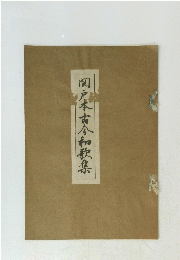 関戸本古今和歌集